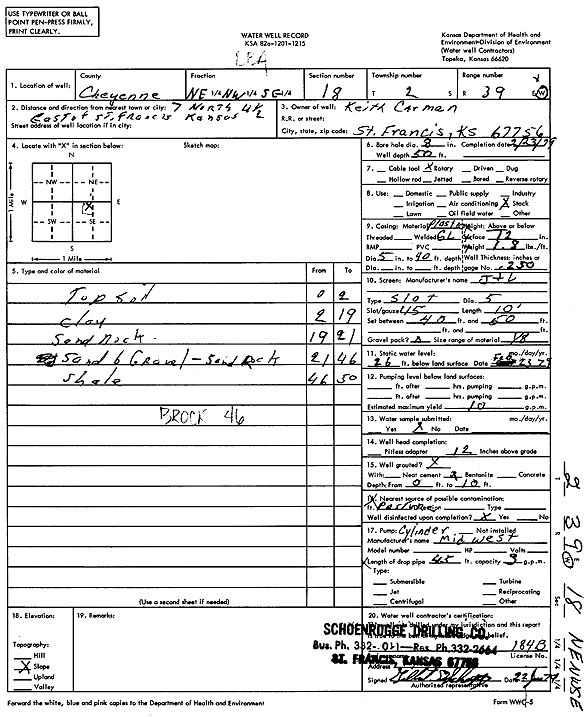 USE TYPEWRITER OR BALL
POINT PEN-PRESS FIRMLY,
PRINT CLEARLY.
WATER WELL RECORD
KSA 82a-1201-1215
Kansas Department of Health and
Environment-Division of Environment
(Water well Contractors)
Topeka, Kansas 66620
1. Location of well:
County
Cheyenne
Fraction
NE 1/4 NW 1/4 SE 1/4
Section number
18
Township number
T 2 S
Range number
R 39 W
2. Distance and direction from nearest town or city: 7 North 4 1/2
East of St. Francis Kansas
Street address of well location if in city:
3. Owner of well: Keith Carman
R.R. or street:
City, state, zip code: St. Francis, KS 67756
4. Locate with "X" in section below:
Sketch map:
N
NW NE
W E
SW SE
S
1 Mile
1 Mile
6. Bore hole dia. 8 in. Completion date 2/23/79
Well depth 50 ft.
7. Cable tool X Rotary Driven Dug
Hollow rod Jetted Bored Reverse rotary
8. Use: Domestic Public supply Industry
Irrigation Air conditioning X Stock
Lawn Oil field water Other
9. Casing: Material Plastic Height: Above or below
Threaded Welded GL Surface 12 in.
RMP PVC Weight 1.8 lbs./ft.
Dia. 5 in. to 40 ft. depth Wall Thickness: inches or
Dia. in. to ft. depth gage No. .250
5. Type and color of material
From To
Top soil 0 2
Clay 2 19
Sand Rock 19 21
Sand & Gravel - Sand Rock 21 46
Shale 46 50
BROCK 46
(Use a second sheet if needed)
10. Screen: Manufacturer's name J+L
Type Slot Dia. 5
Slot/gauze 45 Length 10'
Set between 40 ft. and 50 ft.
ft. and ft.
Gravel pack? Size range of material 1/8
11. Static water level: mo./day/yr.
26 ft. below land surface Date Feb 23 79
12. Pumping level below land surfaces:
ft. after hrs. pumping g.p.m.
ft. after hrs. pumping g.p.m.
Estimated maximum yield 10 g.p.m.
13. Water sample submitted: mo./day/yr.
Yes X No Date
14. Well head completion:
Pitless adapter 12 Inches above grade
15. Well grouted? X
With: Neat cement Bentonite Concrete
Depth: From 0 ft. to 10 ft.
16. Nearest source of possible contamination:
ft. Pasture Direction Type
Well disinfected upon completion? X Yes No
17. Pump: Cylinder Not installed
Manufacturer's name Midwest
Model number HP Volts
Length of drop pipe 45 ft. capacity 3 g.p.m.
Type:
Submersible Turbine
Jet Reciprocating
Centrifugal Other
18. Elevation:
Topography:
Hill
X Slope
Upland
Valley
19. Remarks:
20. Water well contractor's certification:
SCHOENROGGE DRILLING CO.
Bus. Ph. 332- Res. Ph. 332-2664
ST. FRANCIS, KANSAS 67756
184B
License No.
Address
Signed Date 22 June 79
Authorized representative
Forward the white, blue and pink copies to the Department of Health and Environment
Form WWC-5
T 2
R 39 W
Sec 18
1/4 1/4 1/4 NENWSE